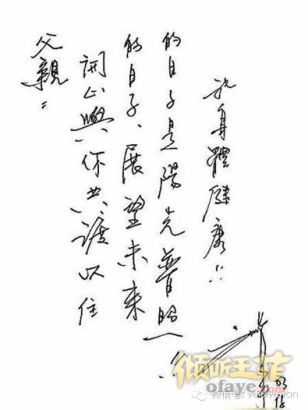 父親：
開心與你共渡以往
的日子、展望未來
的日子是陽光普照一
祝身體健康！！
ofaye.com
微信号: